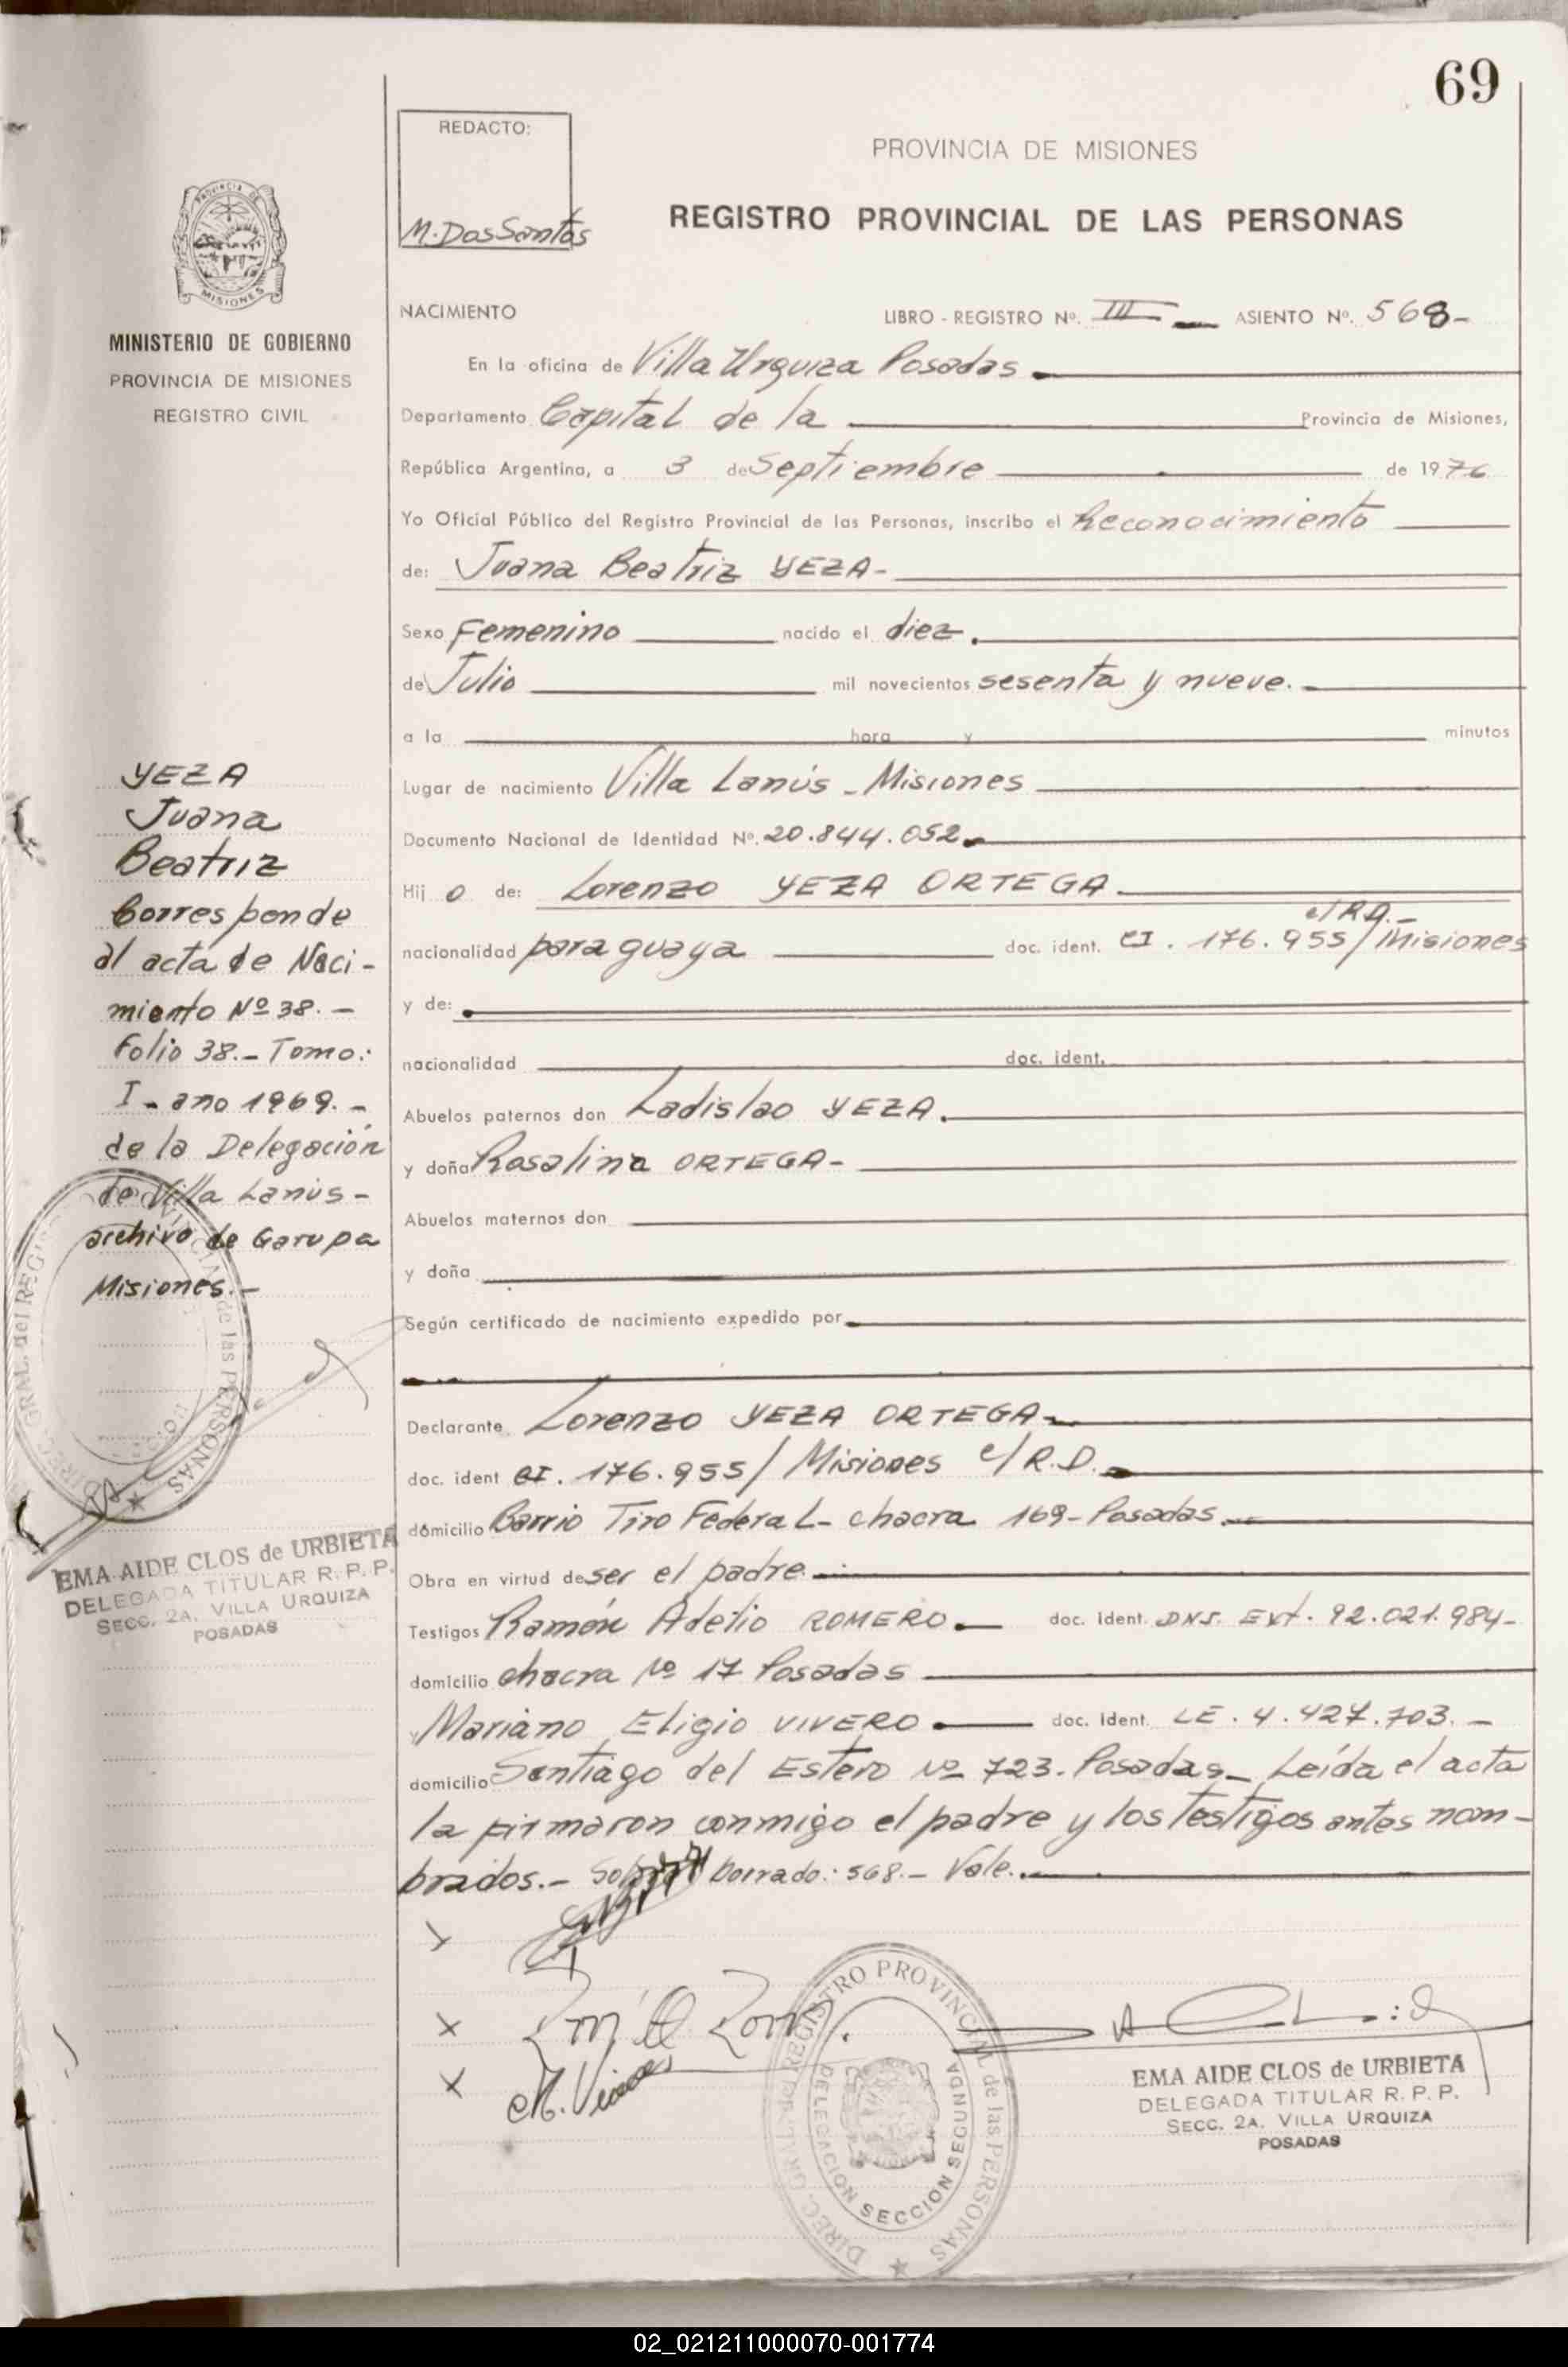 69
REDACTO:
M. Dos Santos
PROVINCIA DE MISIONES
REGISTRO PROVINCIAL DE LAS PERSONAS
PROVINCIA DE
MISIONES
MINISTERIO DE GOBIERNO
PROVINCIA DE MISIONES
REGISTRO CIVIL
NACIMIENTO LIBRO - REGISTRO Nº. III ASIENTO Nº. 568-
En la oficina de Villa Urquiza Posadas
Departamento Capital de la Provincia de Misiones,
República Argentina, a 3 de Septiembre de 1976
Yo Oficial Público del Registro Provincial de las Personas, inscribo el Reconocimiento
de: Juana Beatriz YEZA-
Sexo Femenino nacido el diez.
de Julio mil novecientos sesenta y nueve.
a la hora y minutos
Lugar de nacimiento Villa Lanús - Misiones
Documento Nacional de Identidad Nº. 20.844.052
Hij o de: Lorenzo YEZA ORTEGA.
c/RD.-
nacionalidad paraguaya doc. ident. CI. 176.955/Misiones
y de:
nacionalidad doc. ident.
Abuelos paternos don Ladislao YEZA.
y doña Rosalina ORTEGA-
Abuelos maternos don
y doña
Según certificado de nacimiento expedido por
Declarante Lorenzo YEZA ORTEGA-
doc. ident CI. 176.955/ Misiones c/R.D.
domicilio Barrio Tiro Federal - chacra 169- Posadas.
Obra en virtud de ser el padre.
Testigos Ramón Adelio ROMERO. doc. ident. DNI. Ext. 92.021.984-
domicilio chacra Nº 17 Posadas
y Mariano Eligio VIVERO doc. ident. LE. 4.427.703.-
domicilio Santiago del Estero Nº 723. Posadas_ Leída el acta
la firmaron conmigo el padre y los testigos antes nom-
brados.- Sobre borrado: 568.- Vale.
YEZA
Juana
Beatriz
Corresponde
al acta de Naci-
miento Nº 38.-
Folio 38.- Tomo:
I - año 1969.-
de la Delegación
de Villa Lanús-
archivo de Garupa
Misiones.-
DIREC. GRAL. del REGISTRO PROVINCIAL de las PERSONAS
EMA AIDE CLOS de URBIETA
DELEGADA TITULAR R. P. P.
SECC. 2A. VILLA URQUIZA
POSADAS
x
x
M. Vivero
DIREC. GRAL. del REGISTRO PROVINCIAL de las PERSONAS
DELEGACION SECCION SEGUNDA
EMA AIDE CLOS de URBIETA
DELEGADA TITULAR R. P. P.
SECC. 2A. VILLA URQUIZA
POSADAS
02_021211000070-001774